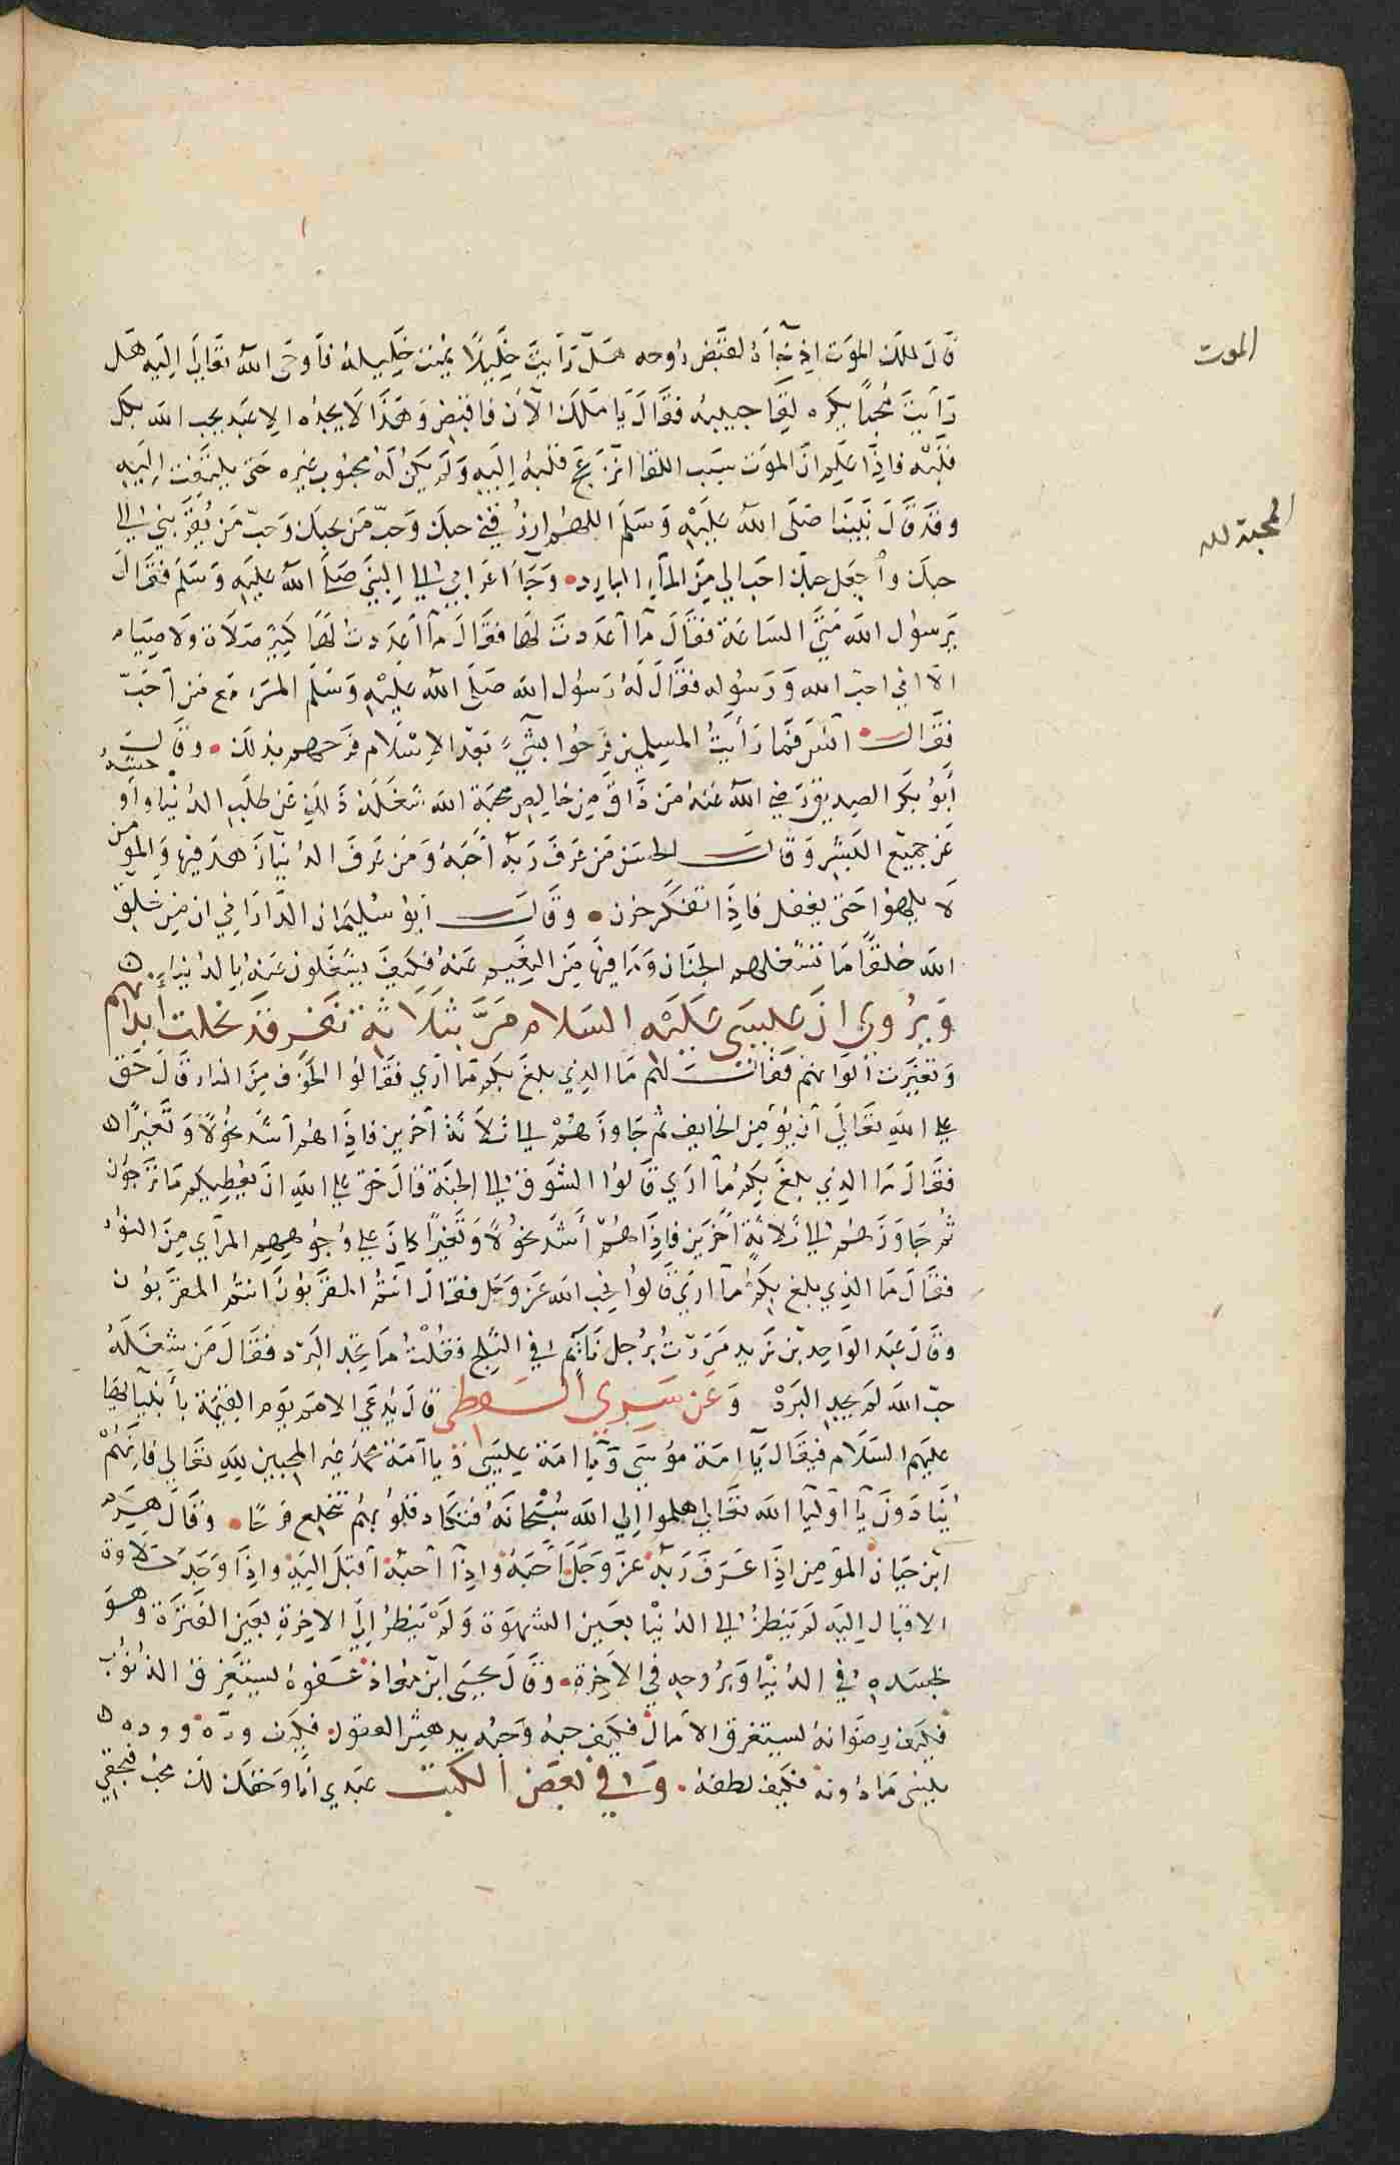 قال لملك الموت اذ جآه لقبض روحه هل رأيت خليلاً يميت خليله فأوحى الله تعالى اليه هل
الموت
رأيت محباً يكره لقا حبيبه فقال يا ملك الآن فاقبض وهذا لا يجده الا عبد يحب الله بكل
قلبه فاذا علم ان الموت سبب اللقا انزعج قلبه اليه ولم يكن له محبوب غيره حتى يلتفت اليه
وقد قال نبينا صلى الله عليه وسلم اللهم ارزقني حبك وحب من يحبك وحب من يقربني الى
المحبة لله
حبك واجعل حبك احب الي من المآء البارد وجآ اعرابي الى النبي صلى الله عليه وسلم فقال
يرسول الله متى الساعة فقال مآ اعددت لها فقال مآ اعددت لها كثير صلاة ولا صيام
الا اني احب الله ورسوله فقال له رسول الله صلى الله عليه وسلم المرء مع من احب
فقال انس فما رأيت المسلمين فرحوا بشيء بعد الاسلام فرحهم بذلك وقال
أبو بكر الصديق رضي الله عنه من ذاق من خالص محبة الله شغله ذلك عن طلب الدنيا واو
حشه
عن جميع البشر وقال الحسن من عرف ربه احبه ومن عرف الدنيا زهد فيها والمؤمن
لا يلهوا حتى يغفل فاذا تفكر حزن وقال ابو سليمان الداراني ان من خلق
الله خلقاً ما تشغلهم الجنان وما فيها من النعيم عنه فكيف يشغلون عنه بالدنيا
ويروي ان عيسى عليه السلام مر بثلاثة نفر قد نحلت أبدانهم
وتغيرت ألوانهم فقال لهم ما الذي بلغ بكم ما ارى فقالوا الخوف من النار قال حق
على الله تعالى أن يؤمن الخايف ثم جاوزهم الى ثلاثة آخرين فاذا هم أشد نحولاً وتغيراً
فقال ما الذي بلغ بكم مآ ارى قالوا الشوق الى الجنة قال حق على الله ان يعطيكم ما ترجون
ثم جاوزهم الى ثلاثة آخرين فاذا هم أشد نحولاً وتغيراً كان على وجوههم المرآي من النور
فقال ما الذي بلغ بكم مآ ارى قالوا نحب الله عز وجل فقال انتم المقربون انتم المقربون
وقال عبد الواحد بن زيد مررت برجل نائم في الثلج فقلت ما تجد البرد فقال من شغله
حب الله لم يجد البرد وعن سري السقطي قال يدعى الامم يوم القيمة بأنبيآيها
عليهم السلام فيقال يآ امة موسى ويآ امة عيسى ويا امة محمد غير المحبين لله تعالى فانهم
ينادون يآ اوليا الله تعالى هلموا الى الله سبحانه فتكاد قلوبهم تنخلع فرحا وقال هرم
ابن حيان المؤمن اذا عرف ربه عز وجل احبه واذآ احبه أقبل اليه واذا وجد حلاوة
الاقبال اليه لم ينظر الى الدنيا بعين الشهوة ولم ينظر الى الاخرة بعين الفترة وهو
بجسده في الدنيا وبروحه في الآخرة وقال يحيى ابن معاذ عفوه يستغرق الذنوب
فكيف رضوانه يستغرق الآمال فكيف حبه وحبه يدهش العقول فكيف ودّه ووده
ينسى ما دونه فكيف لطفه وفي بعض الكتب عبدي انا وحقك لك محب فبحقي